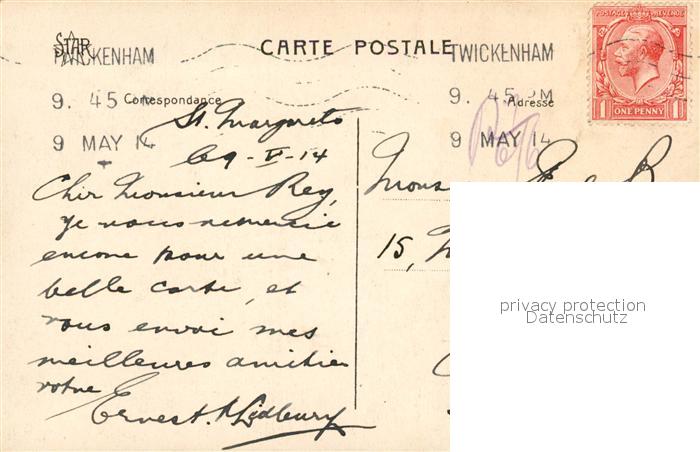 STAR
CARTE POSTALE
TWICKENHAM
TWICKENHAM
POSTAGE REVENUE
9. 45 PM
9. 45 PM
Correspondance
Adresse
1 ONE PENNY 1
9 MAY 14
9 MAY 14
St. Margarets
9-V-14
Cher Monsieur Rey,
je vous remercie
encore pour une
belle carte, et
vous envoi mes
meilleures amitiés
votre
Ernest A Ledbury
Mons
15,
privacy protection
Datenschutz